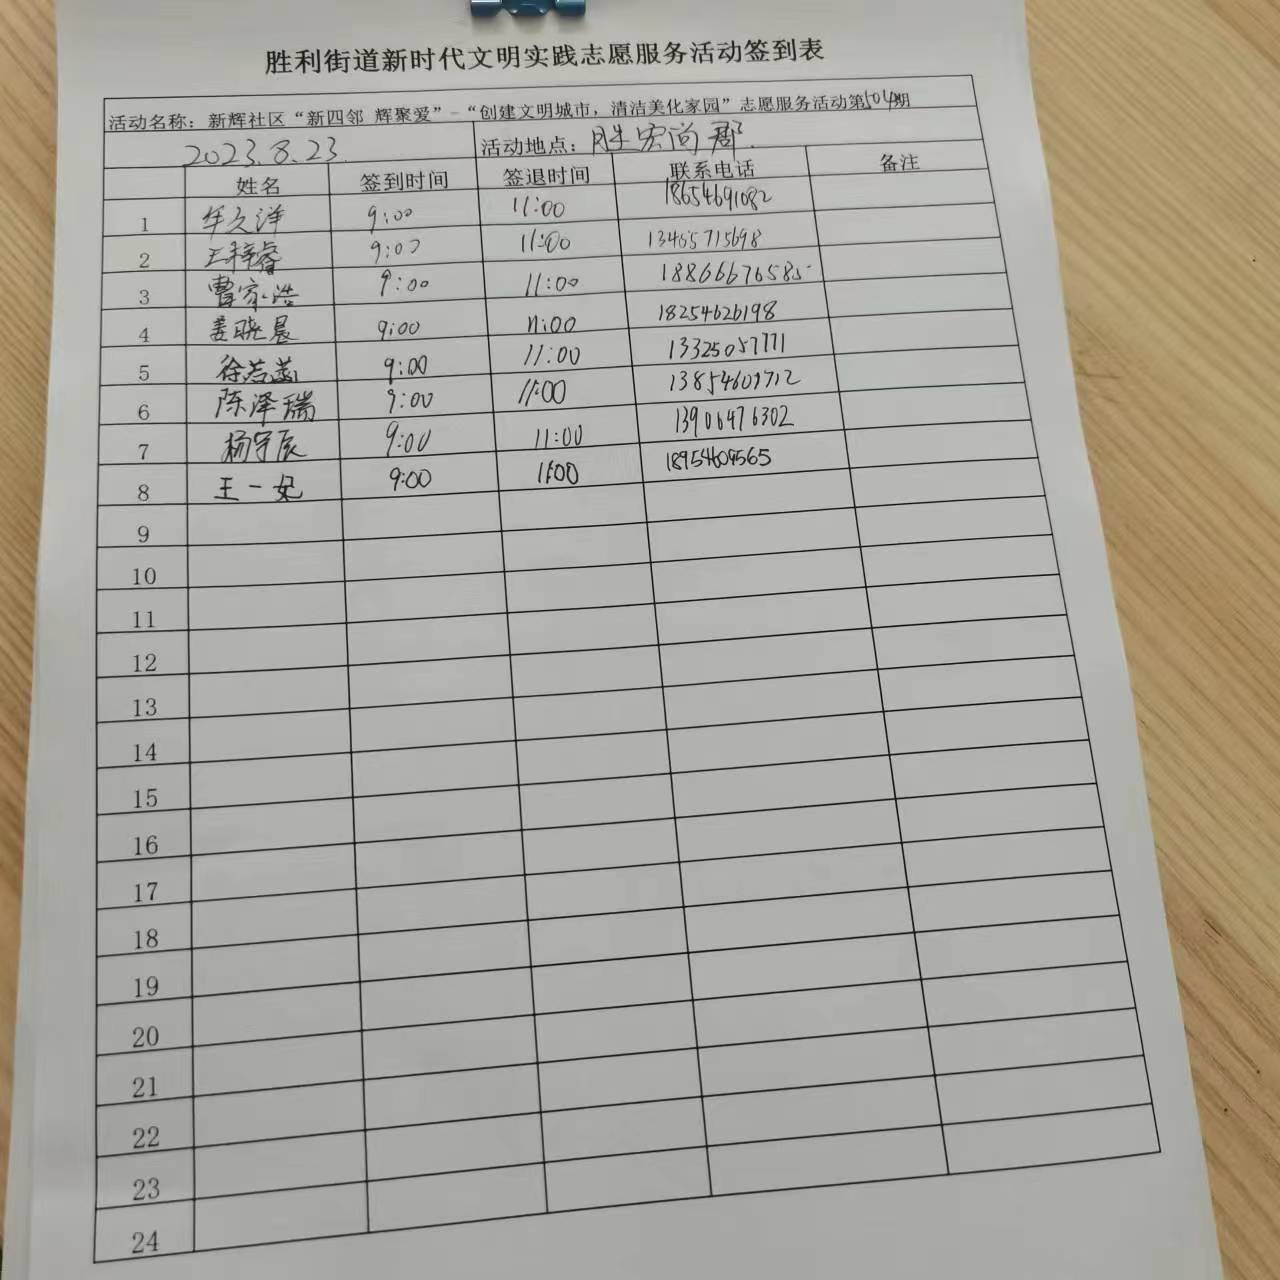 胜利街道新时代文明实践志愿服务活动签到表
活动名称：新辉社区“新四邻 辉聚爱”-“创建文明城市，清洁美化家园”志愿服务活动第504期
2023.8.23 活动地点：胜宏尚郡.
姓名 签到时间 签退时间 联系电话 备注
1 牟久洋 9:00 11:00 18654691082
2 王梓睿 9:00 11:00 13465715698
3 曹家浩 9:00 11:00
4 姜晓晨 9:00 11:00 18254626198
5 徐若菡 9:00 11:00 13325057771
6 陈泽瑞 9:00 11:00 13854609712
7 杨守辰 9:00 11:00 13906476302
8 王一妃 9:00 11:00 18954604565
9
10
11
12
13
14
15
16
17
18
19
20
21
22
23
24